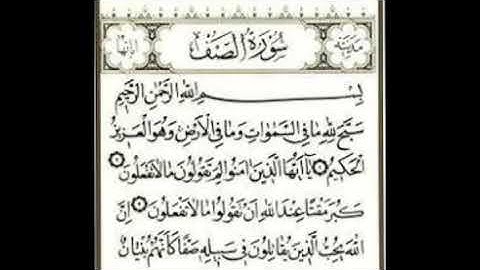 مدنية سورة الصف آياتها
بسم الله الرحمن الرحيم
سبح لله ما في السموات وما في الأرض وهو العزيز
الحكيم يا أيها الذين امنوا لم تقولون ما لا تفعلون
كبر مقتا عند الله أن تقولوا ما لا تفعلون إن
الله يحب الذين يقاتلون في سبيله صفا كأنهم بنيان